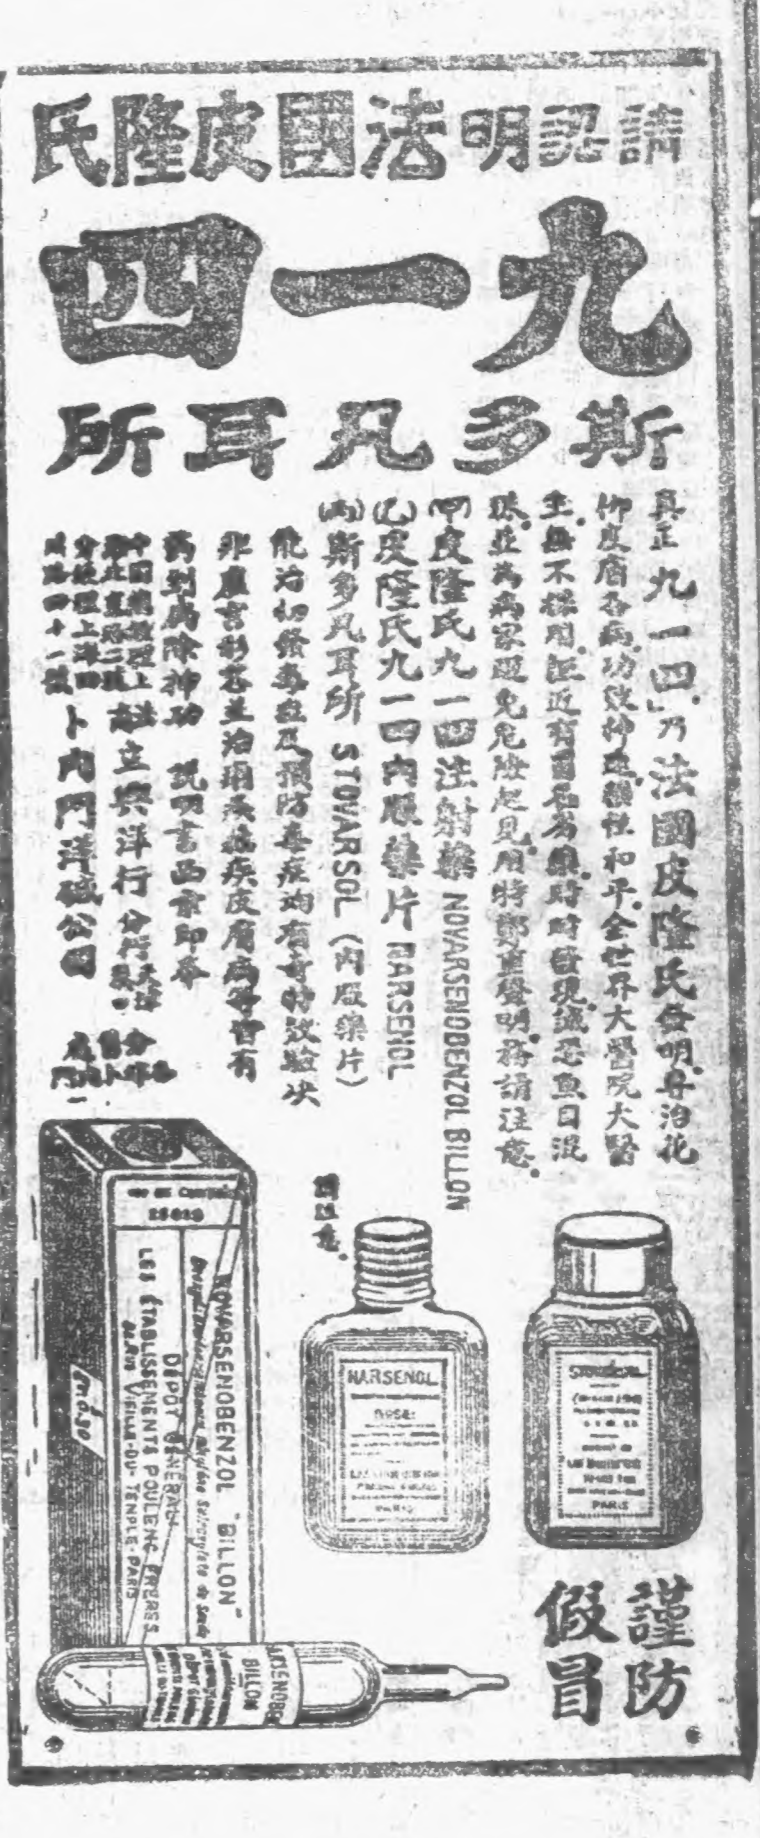 請認明法國皮隆氏
九一四
斯多凡耳所
真正九一四乃法國皮隆氏發明専治花
柳皮膚各病功效神速猛性和平全世界大醫院大醫
生無不採用近有冒名劣藥時時發現誠恐魚目混
珠並為病家避免危險起見用特鄭重聲明務請注意
(甲)皮隆氏九一四注射藥 NOVARSENOBENZOL BILLON
(乙)皮隆氏九一四內服藥片 NARSENOL
(丙)斯多凡耳所 STOVARSOL (內服藥片)
能治初發毒症及預防毒症均有奇特效驗決
非虛言形容並治瘧疾痢疾皮膚病等皆有
藥到病除神功 說明書函索即奉
立興洋行
卜內門洋鹼公司
請注意
NOVARSENOBENZOL "BILLON"
DÉPOT GÉNÉRAL
LES ÉTABLISSEMENTS POULENC FRÈRES
VIEILLE-DU-TEMPLE-PARIS
BILLON
NARSENOL
PARIS
PARIS
謹防
假冒